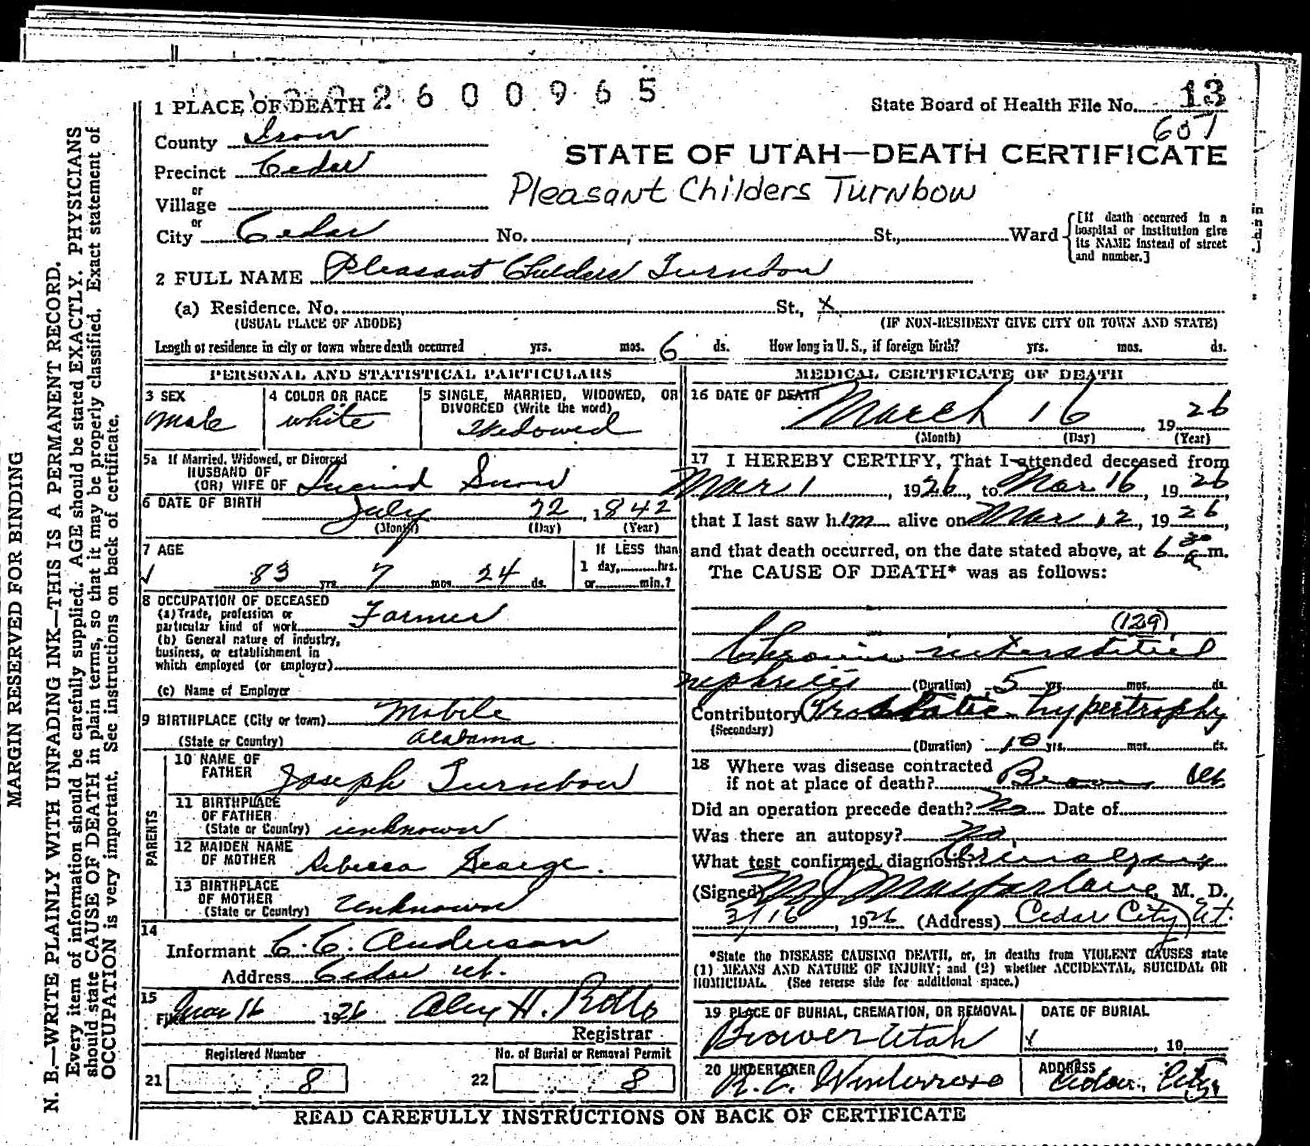 2 6 0 0 9 6 5
1 PLACE OF DEATH
State Board of Health File No. 13
607
County Iron
STATE OF UTAH—DEATH CERTIFICATE
Precinct Cedar
Pleasant Childers Turnbow
or
Village
or
City Cedar No. St., Ward
[If death occurred in a
hospital or institution give
its NAME instead of street
and number.]
2 FULL NAME Pleasant Childers Turnbow
(a) Residence. No. St., X
(USUAL PLACE OF ABODE) (IF NON-RESIDENT GIVE CITY OR TOWN AND STATE)
Length of residence in city or town where death occurred yrs. mos. 6 ds. How long in U. S., if foreign birth? yrs. mos. ds.
PERSONAL AND STATISTICAL PARTICULARS
3 SEX
male
4 COLOR OR RACE
white
5 SINGLE, MARRIED, WIDOWED, OR
DIVORCED (Write the word)
Widowed
5a If Married, Widowed, or Divorced
HUSBAND OF
(OR) WIFE OF
6 DATE OF BIRTH July 22, 1842
(Month) (Day) (Year)
7 AGE
83 yrs. 7 mos. 24 ds.
If LESS than
1 day, hrs.
or min.?
8 OCCUPATION OF DECEASED
(a) Trade, profession or
particular kind of work Farmer
(b) General nature of industry,
business, or establishment in
which employed (or employer)
(c) Name of Employer
9 BIRTHPLACE (City or town) Mobile
(State or Country) Alabama
PARENTS
10 NAME OF
FATHER Joseph Turnbow
11 BIRTHPLACE
OF FATHER
(State or Country) unknown
12 MAIDEN NAME
OF MOTHER Rebecca George.
13 BIRTHPLACE
OF MOTHER
(State or Country) Unknown
14
Informant C. C. Anderson
Address Cedar Ut.
15
Filed Mar 16 1926 Alex H. Rollo
Registrar
Registered Number
21 8
No. of Burial or Removal Permit
22 8
MEDICAL CERTIFICATE OF DEATH
16 DATE OF DEATH
March 16 1926
(Month) (Day) (Year)
17 I HEREBY CERTIFY, That I attended deceased from
Mar 1, 1926, to Mar 16, 1926,
that I last saw him alive on Mar 12, 1926,
and that death occurred, on the date stated above, at 6 30 a m.
The CAUSE OF DEATH* was as follows:
(129)
Chronic interstitial
nephritis (Duration) 5 yrs. mos. ds.
Contributory Prostatic hypertrophy
(Secondary)
(Duration) 10 yrs. mos. ds.
18 Where was disease contracted
if not at place of death? Beaver Ut
Did an operation precede death? No Date of
Was there an autopsy? No.
What test confirmed diagnosis? Urinalysis
(Signed) M J Macfarlane M. D.
3/16, 1926 (Address) Cedar City Ut.
*State the DISEASE CAUSING DEATH, or, in deaths from VIOLENT CAUSES state
(1) MEANS AND NATURE OF INJURY; and (2) whether ACCIDENTAL, SUICIDAL OR
HOMICIDAL. (See reverse side for additional space.)
19 PLACE OF BURIAL, CREMATION, OR REMOVAL
Beaver Utah
DATE OF BURIAL
, 19
20 UNDERTAKER
Winterrose
ADDRESS
Cedar City
READ CAREFULLY INSTRUCTIONS ON BACK OF CERTIFICATE
MARGIN RESERVED FOR BINDING
N. B.—WRITE PLAINLY WITH UNFADING INK—THIS IS A PERMANENT RECORD.
Every item of information should be carefully supplied. AGE should be stated EXACTLY. PHYSICIANS
should state CAUSE OF DEATH in plain terms, so that it may be properly classified. Exact statement of
OCCUPATION is very important. See instructions on back of certificate.